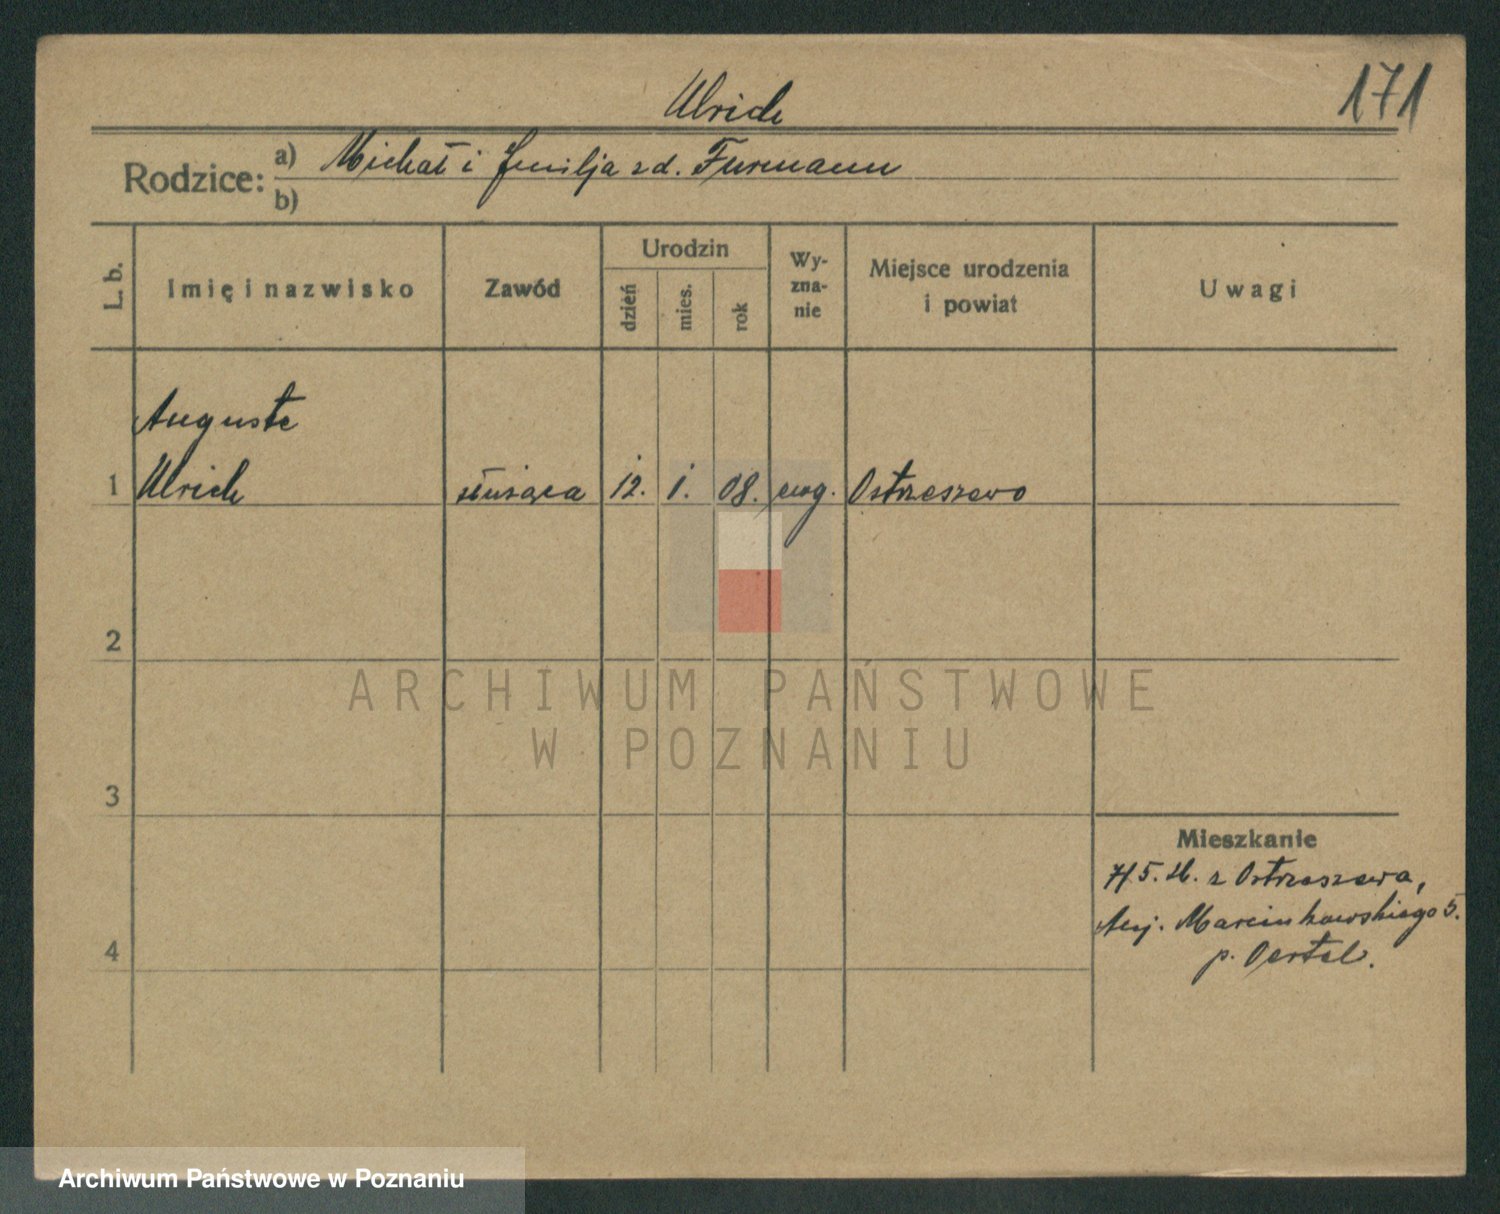 171
Ulrich
Rodzice: a) Michał i Emilja zd. Furmann
b)
L. b. Imię i nazwisko Zawód Urodzin dzień mies. rok Wy-zna-nie Miejsce urodzenia i powiat Uwagi
Auguste
1 Ulrich służąca 12. 1. 08. ewg. Ostrzeszewo
2
ARCHIWUM PAŃSTWOWE
W POZNANIU
3
Mieszkanie
7/5. z Ostrzeszewa,
Marcinkowskiego 5.
4
p. Oertel.
Archiwum Państwowe w Poznaniu